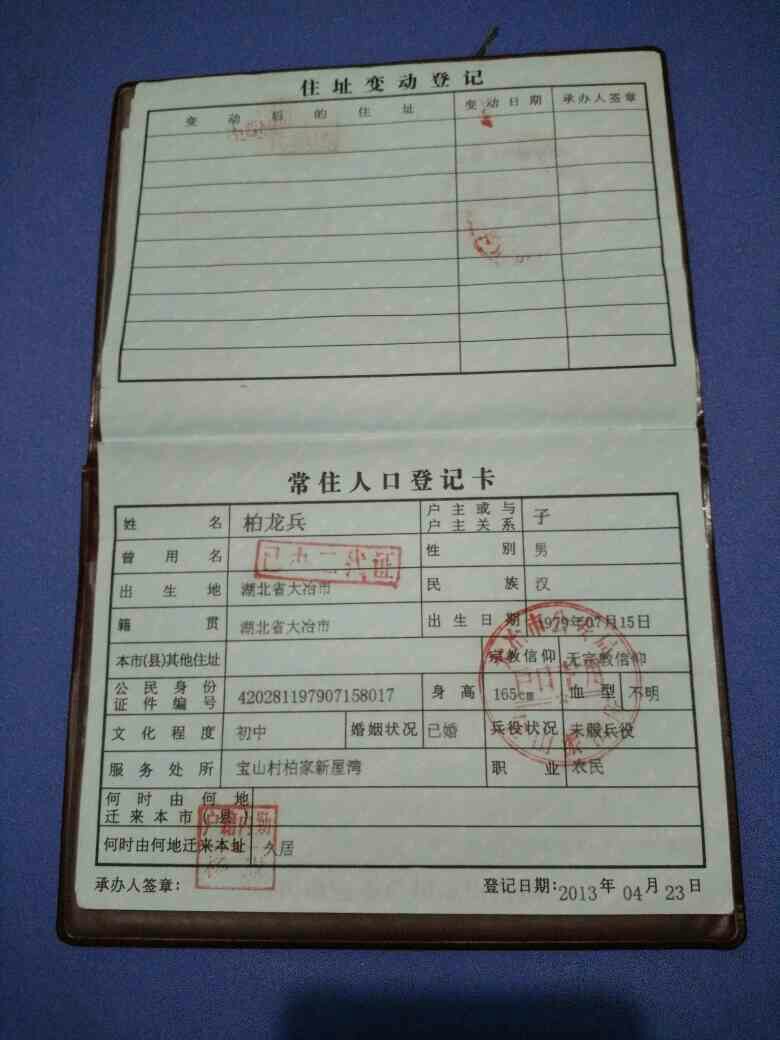 住址变动登记
变动后的住址 变动日期 承办人签章
常住人口登记卡
姓名 柏龙兵 户主或与户主关系 子
曾用名 性别 男
已办二代证
出生地 湖北省大冶市 民族 汉
籍贯 湖北省大冶市 出生日期 1979年07月15日
本市(县)其他住址 宗教信仰 无宗教信仰
公民身份证件编号 420281197907158017 身高 165cm 血型 不明
文化程度 初中 婚姻状况 已婚 兵役状况 未服兵役
服务处所 宝山村柏家新屋湾 职业 农民
何时由何地迁来本市(县)
何时由何地迁来本址 久居
承办人签章: 登记日期:2013年04月23日